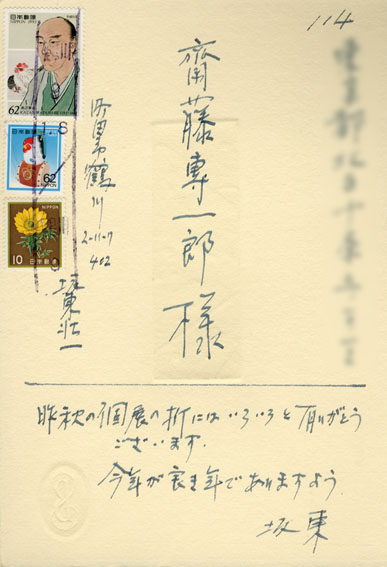 114
齋藤専一郎様
町田市鶴川
2-11-17
402
坂東壮一
昨秋の個展の折にはいろいろと有りがとう
ございます。
今年が良き年でありますよう
坂東
日本郵便
NIPPON 1992
62
NIPPON
日本郵便
62
NIPPON
10
日本郵便